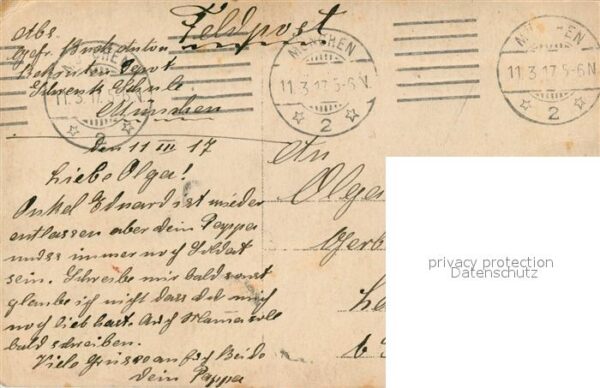 Feldpost
Abs.
Gefr. Buck Anton
Rekruten Depot
Schwenk Schule
München
MÜNCHEN
11.3.17.5-6N.
2
MÜNCHEN
11.3.17.5-6N.
2
MÜNCHEN
11.3.17.5-6N.
2
den 11 III 17
Liebe Olga!
Onkel Eduard ist wieder
entlassen aber dein Pappa
muss immer noch Soldat
sein. Schreibe mir bald sonst
glaube ich nicht dass du mich
noch lieb hast. Auch Mamma soll
bald schreiben.
Viele Grüsse an Euch Beide
dein Pappa
An
Olga
privacy protection
Datenschutz